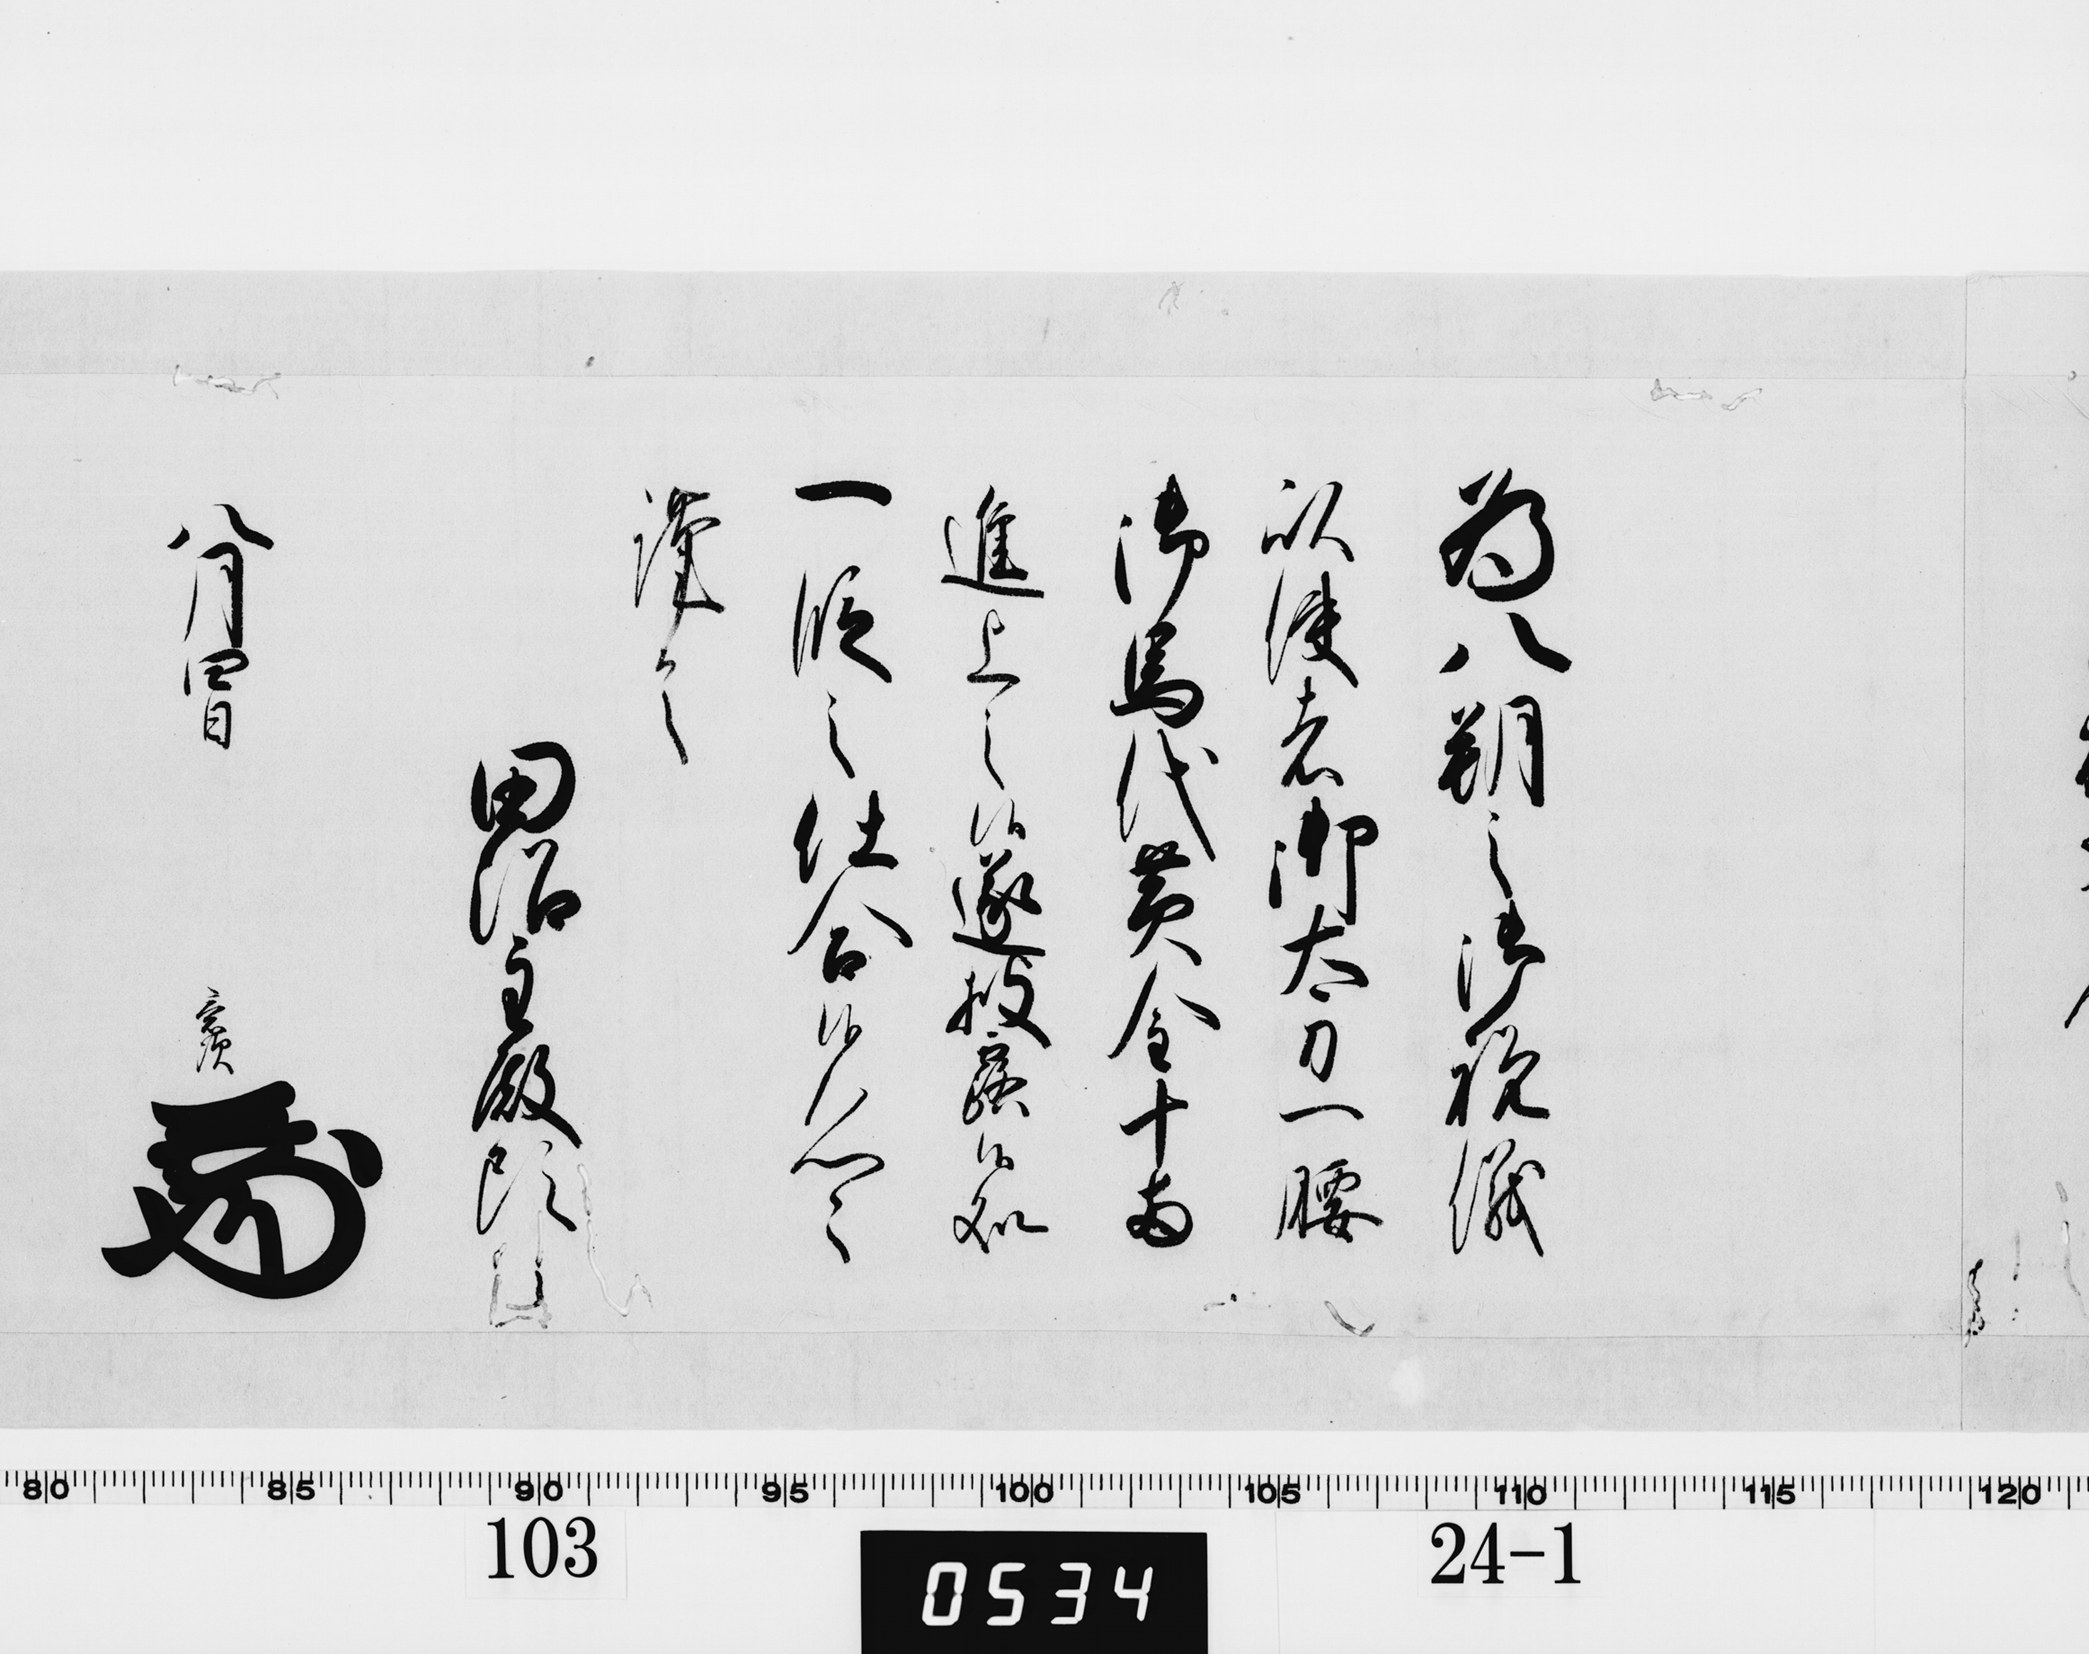 為八朔之御祝儀
以使者御太刀一腰
御馬代黄金十両
進上之候遂披露候処
一段之仕合候恐々
謹言
田沼主殿頭
八月四日
意次
80 85 90 95 100 105 110 115 120
103
0534
24-1